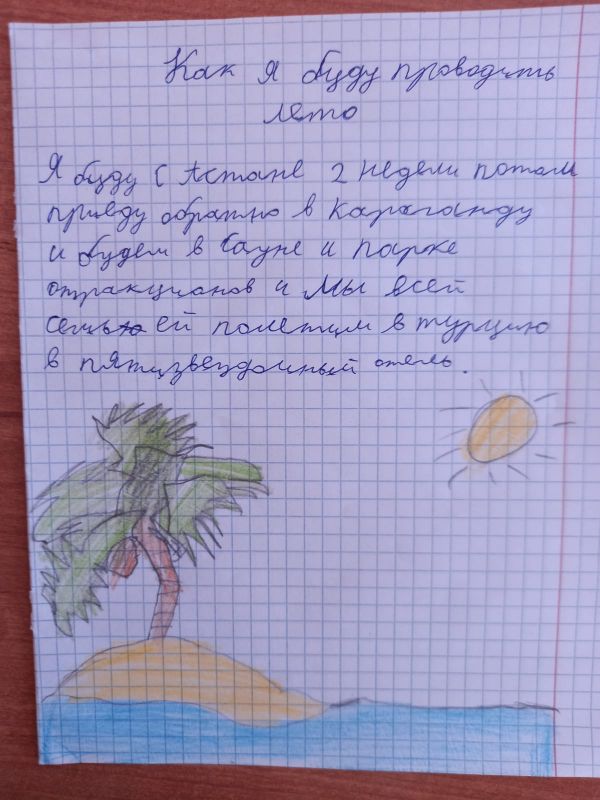 Как я буду проводить
лето
Я буду с Астане 2 недели потом
приеду обратно в Караганду
и будем в сауне и парке
отракционов и мы всей
семьей полетим в турцию
в пятизвездочный отель.